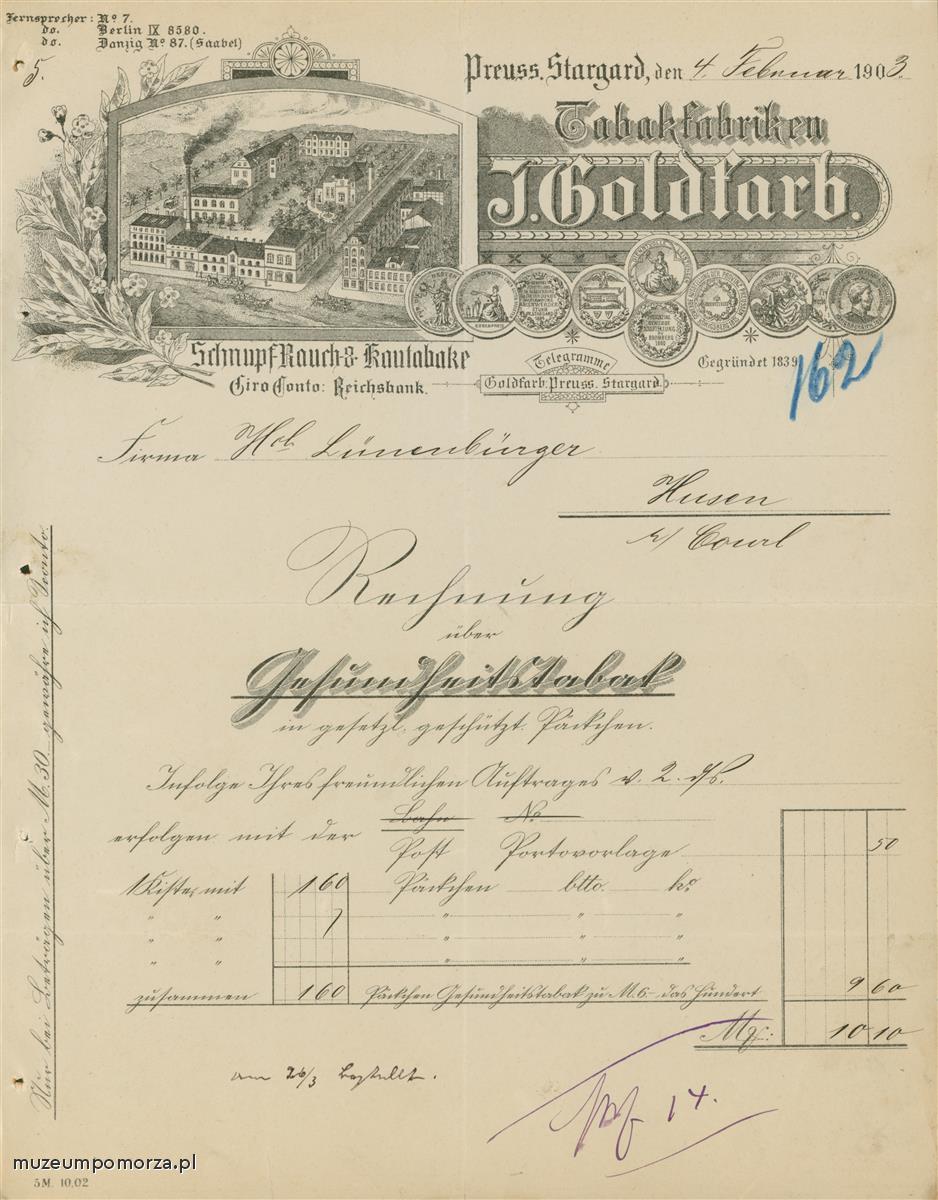 Fernsprecher: No 7.
do. Berlin IX 8580.
do. Danzig No 87. (Saabel)
5.
Preuss. Stargard, den 4. Februar 1903.
Tabakfabriken
J. Goldfarb.
Schnupf Rauch- & Kautabake
Giro Conto: Reichsbank.
Telegramme
Goldfarb, Preuss. Stargard.
Gegründet 1839
162
Firma Hch Lünenbürger
Husen
b/ Courl
Rechnung
über
Gesundheitstabak
in gesetzl. geschützt. Päckchen.
Infolge Ihres freundlichen Auftrages v. 2. ds.
erfolgen mit der Bahn No
Post Portovorlage 50
1 Kiste, mit 160 Päckchen btto. ko
" " " " "
" " " " "
" " " " "
zusammen 160 Päckchen Gesundheitstabak zu M. 6.- das Hundert 9 60
Mk.: 10 10
am 26/3 bestellt.
14.
Nur bei Beträgen über M. 30 gewähre ich Sconto.
muzeumpomorza.pl
5 M. 10,02